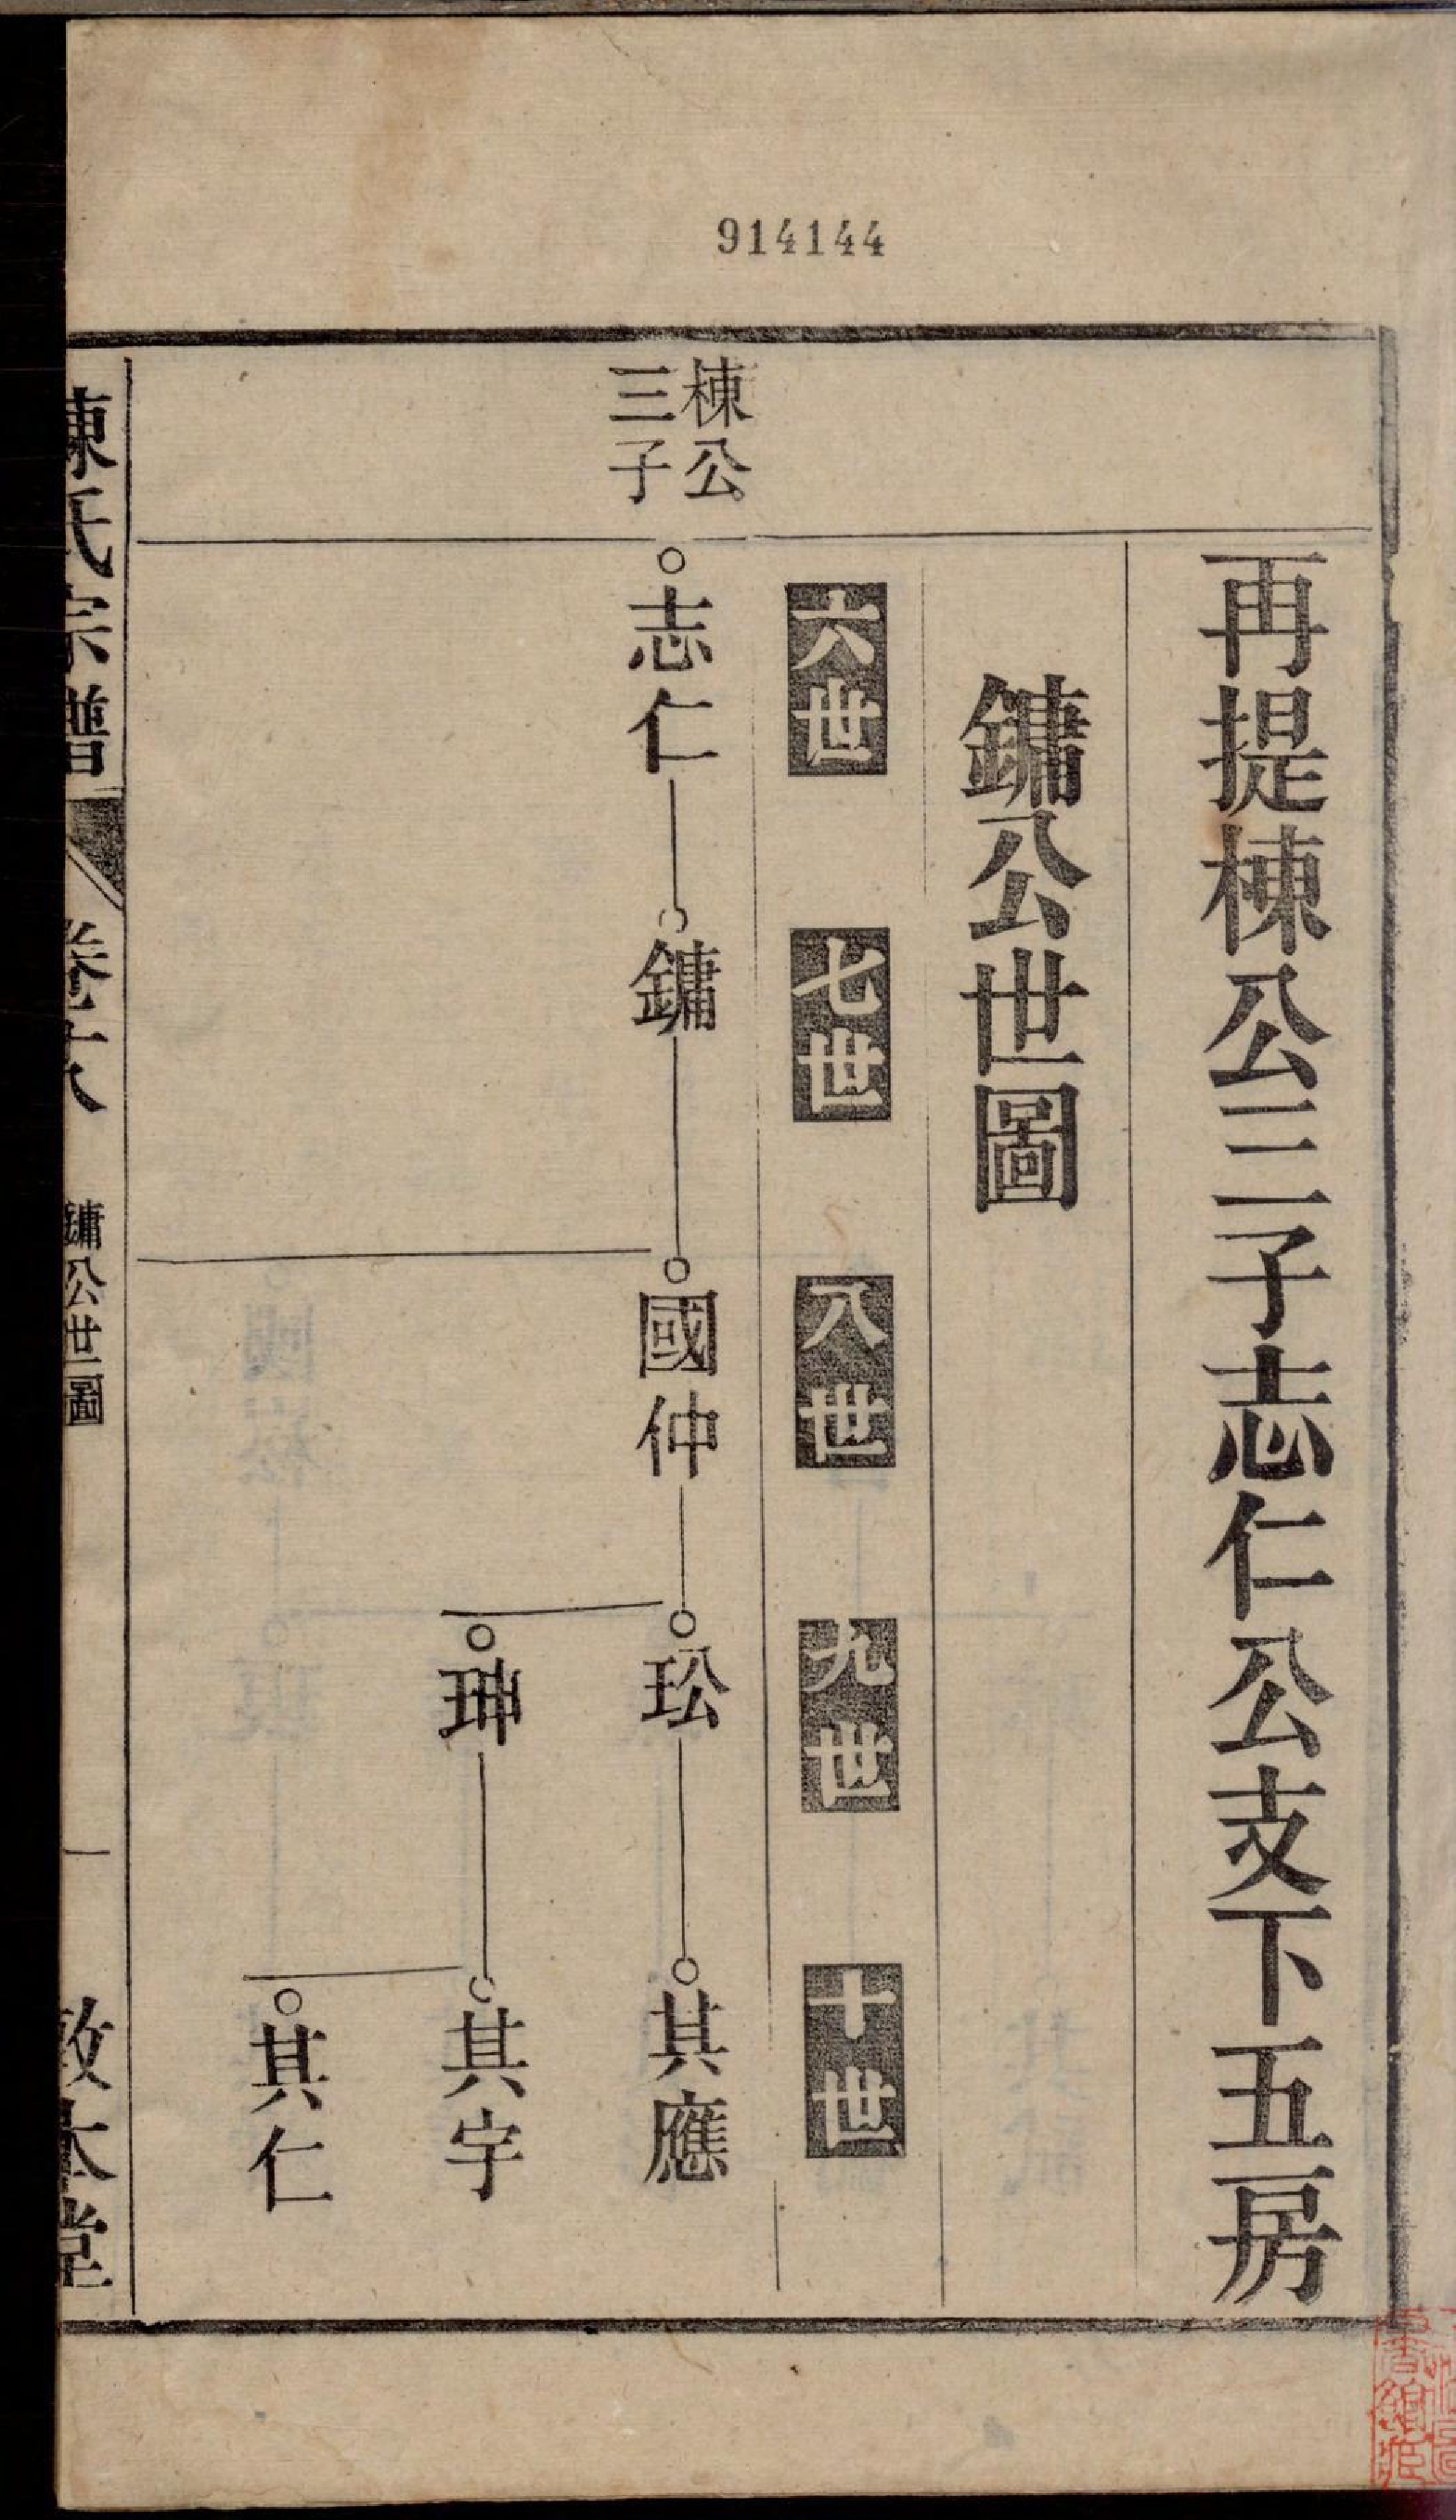 914144
再提棟公三子志仁公支下五房
鏞公世圖
六世
七世
八世
九世
十世
棟公
三子
志仁
鏞
國仲
玜
其應
珅
其宇
其仁
陳氏宗譜
卷十八
鏞公世圖
一
敦本堂